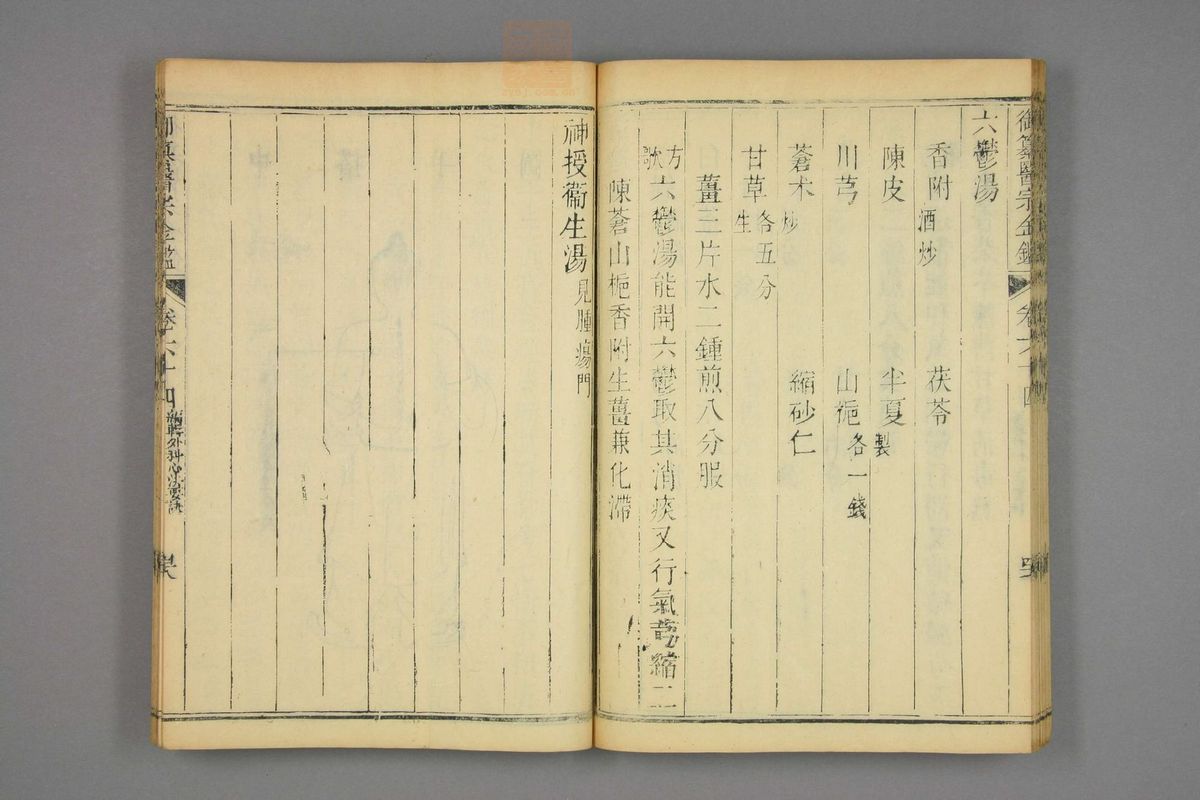 御纂醫宗金鑑 卷六十四
六鬱湯
香附酒炒 茯苓
陳皮 半夏製
川芎 山梔各一錢
蒼朮炒 縮砂仁
甘草生各五分
薑三片水二鍾煎八分服
方歌六鬱湯能開六鬱取其消痰又行氣芎縮二
陳蒼山梔香附生薑兼化滯
神授衞生湯見腫瘍門
御纂醫宗金鑑 卷六十四 編輯外科心法要訣